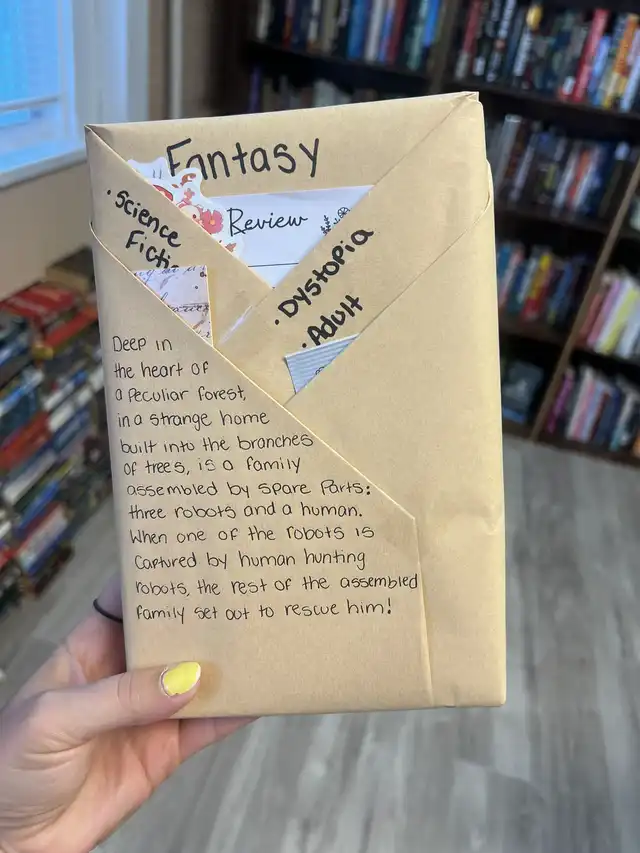 Fantasy
· Science
Fictio
Review
· Dystopia
· Adult
Deep in
the heart of
a peculiar forest,
in a strange home
built into the branches
of trees, is a family
assembled by spare parts:
three robots and a human.
When one of the robots is
captured by human hunting
robots, the rest of the assembled
family set out to rescue him!